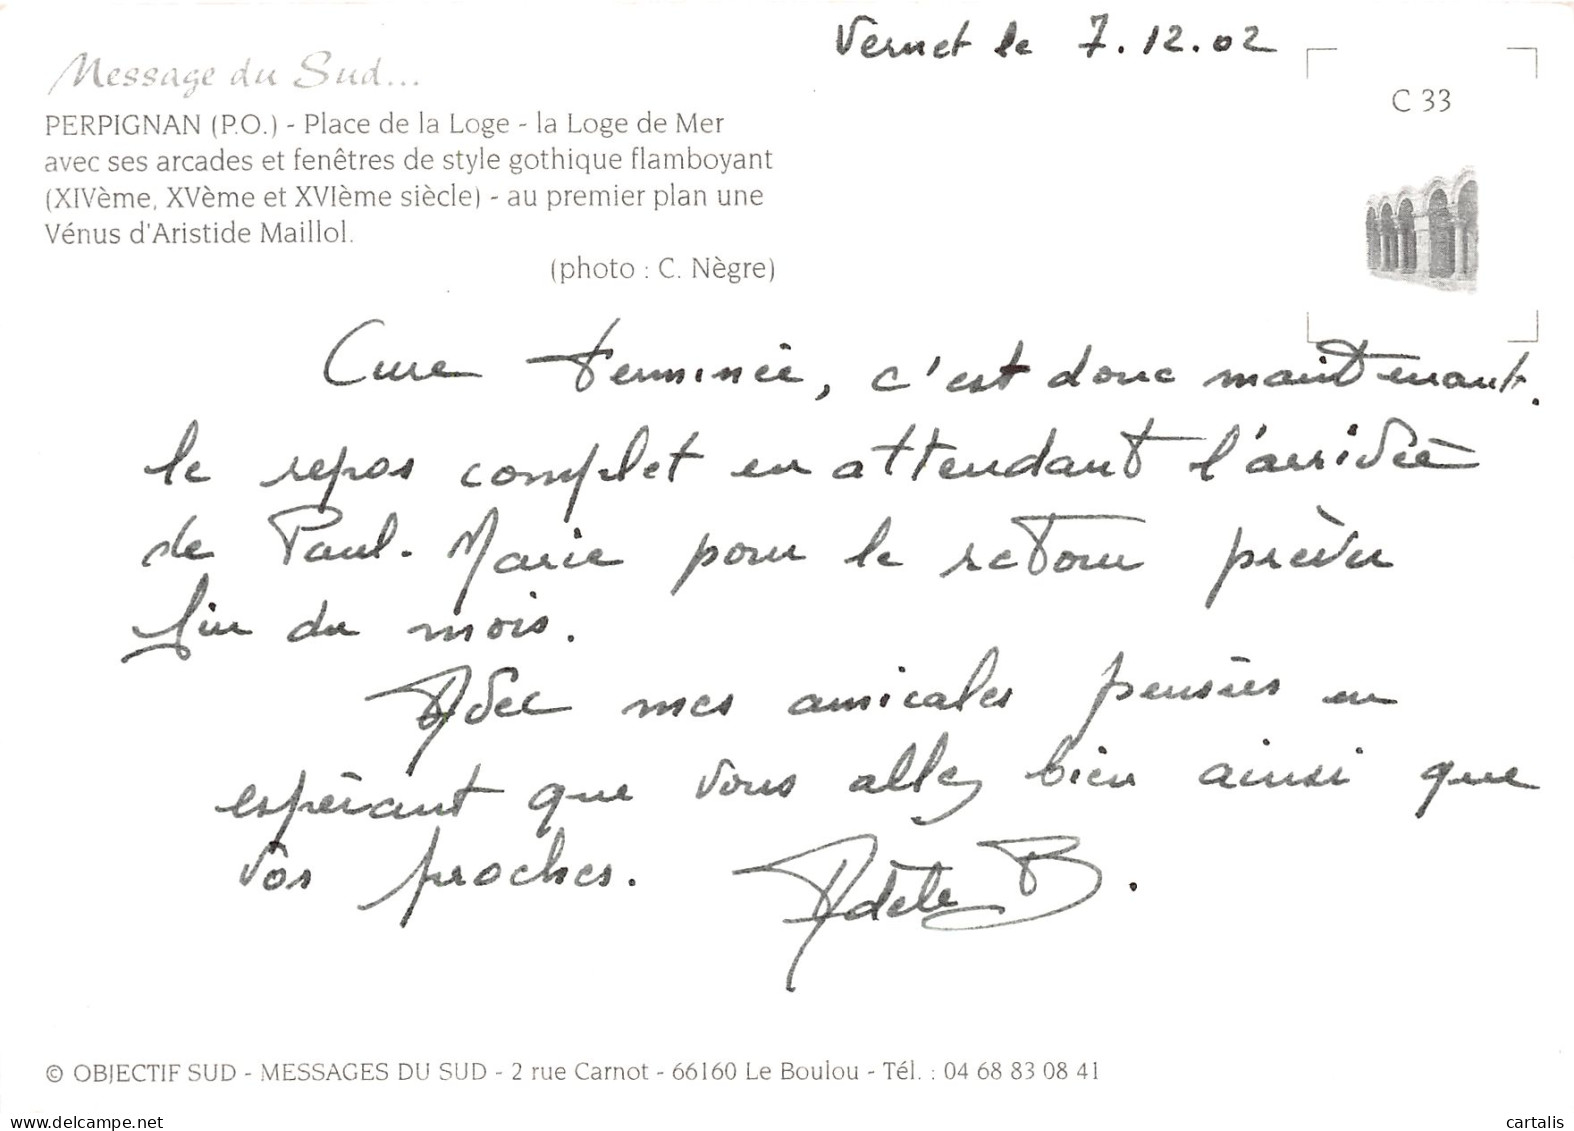 Vernet le 7.12.02
Message du Sud...
C 33
PERPIGNAN (P.O.) - Place de la Loge - la Loge de Mer
avec ses arcades et fenêtres de style gothique flamboyant
(XIVème, XVème et XVIème siècle) - au premier plan une
Vénus d'Aristide Maillol.
(photo : C. Nègre)
Cure terminée, c'est donc maintenant.
le repos complet en attendant l'arrivée
de Paul-Marie pour le retour prévu
fin du mois.
Avec mes amicales pensées en
espérant que vous allez bien ainsi que
vos proches. Adèle B.
© OBJECTIF SUD - MESSAGES DU SUD - 2 rue Carnot - 66160 Le Boulou - Tél. : 04 68 83 08 41
www.delcampe.net
cartalis